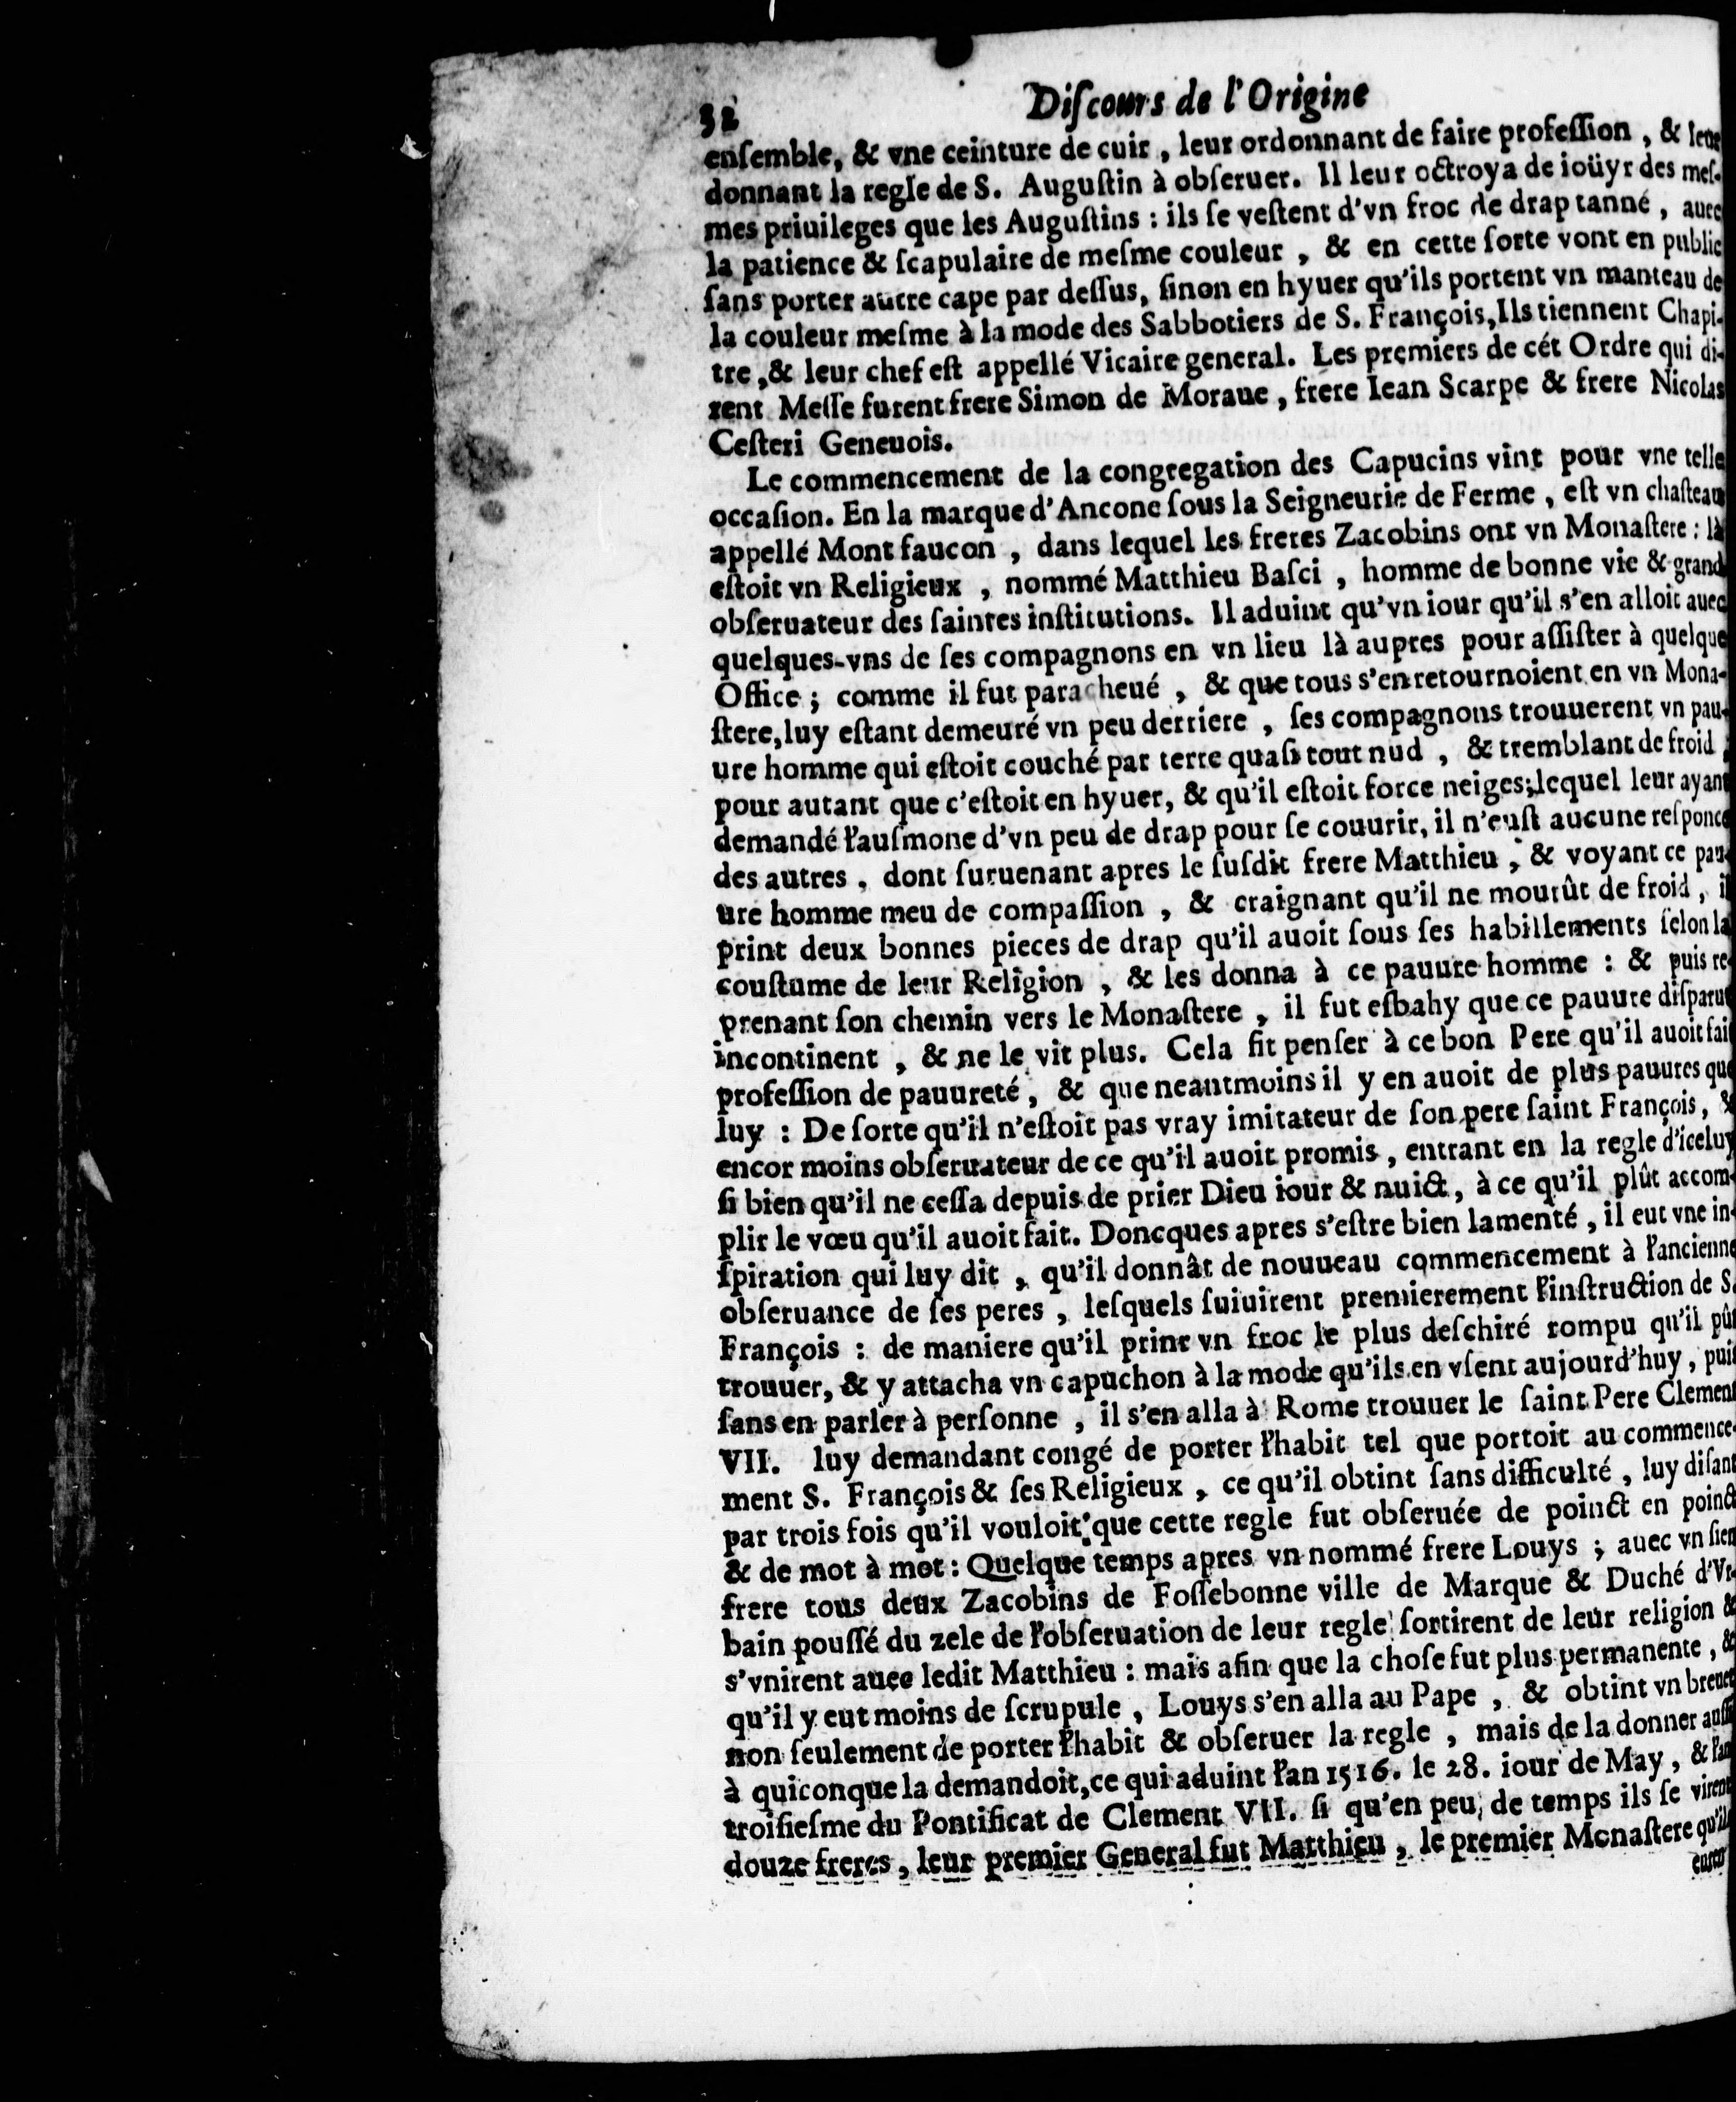 32 Diſcours de l'Origine
enſemble, & vne ceinture de cuir, leur ordonnant de faire profeſſion, & leur
donnant la regle de S. Auguſtin à obſeruer. Il leur octroya de ioüyr des meſ-
mes priuileges que les Auguſtins : ils ſe veſtent d'vn froc de drap tanné, auec
la patience & ſcapulaire de meſme couleur, & en cette ſorte vont en public
ſans porter autre cape par deſſus, ſinon en hyuer qu'ils portent vn manteau de
la couleur meſme à la mode des Sabbotiers de S. François, Ils tiennent Chapi-
tre, & leur chef eſt appellé Vicaire general. Les premiers de cét Ordre qui di-
rent Meſſe furent frere Simon de Moraue, frere Iean Scarpe & frere Nicolas
Ceſteri Geneuois.
Le commencement de la congregation des Capucins vint pour vne telle
occaſion. En la marque d'Ancone ſous la Seigneurie de Ferme, eſt vn chaſteau
appellé Mont faucon, dans lequel les freres Zacobins ont vn Monaſtere : là
eſtoit vn Religieux, nommé Matthieu Baſci, homme de bonne vie & grand
obſeruateur des ſaintes inſtitutions. Il aduint qu'vn iour qu'il s'en alloit auec
quelques-vns de ſes compagnons en vn lieu là aupres pour aſſiſter à quelque
Office ; comme il fut paracheué, & que tous s'en retournoient en vn Mona-
ſtere, luy eſtant demeuré vn peu derriere, ſes compagnons trouuerent vn pau-
ure homme qui eſtoit couché par terre quaſi tout nud, & tremblant de froid ;
pour autant que c'eſtoit en hyuer, & qu'il eſtoit force neiges ; lequel leur ayant
demandé l'auſmone d'vn peu de drap pour ſe couurir, il n'euſt aucune reſponce
des autres, dont ſuruenant apres le ſuſdit frere Matthieu, & voyant ce pau-
ure homme meu de compaſſion, & craignant qu'il ne mourût de froid, il
print deux bonnes pieces de drap qu'il auoit ſous ſes habillements ſelon la
couſtume de leur Religion, & les donna à ce pauure homme : & puis re-
prenant ſon chemin vers le Monaſtere, il fut eſbahy que ce pauure diſparut
incontinent, & ne le vit plus. Cela fit penſer à ce bon Pere qu'il auoit fait
profeſſion de pauureté, & que neantmoins il y en auoit de plus pauures que
luy : De ſorte qu'il n'eſtoit pas vray imitateur de ſon pere ſaint François, &
encor moins obſeruateur de ce qu'il auoit promis, entrant en la regle d'iceluy
ſi bien qu'il ne ceſſa depuis de prier Dieu iour & nuict, à ce qu'il plût accom-
plir le vœu qu'il auoit fait. Doncques apres s'eſtre bien lamenté, il eut vne in-
ſpiration qui luy dit, qu'il donnât de nouueau commencement à l'ancienne
obſeruance de ſes peres, leſquels ſuiuirent premierement l'inſtruction de S.
François : de maniere qu'il print vn froc le plus deſchiré rompu qu'il pût
trouuer, & y attacha vn capuchon à la mode qu'ils en vſent aujourd'huy, puis
ſans en parler à perſonne, il s'en alla à Rome trouuer le ſaint Pere Clement
VII. luy demandant congé de porter l'habit tel que portoit au commence-
ment S. François & ſes Religieux, ce qu'il obtint ſans difficulté, luy diſant
par trois fois qu'il vouloit que cette regle fut obſeruée de poinct en poinct
& de mot à mot : Quelque temps apres vn nommé frere Louys ; auec vn ſien
frere tous deux Zacobins de Foſſebonne ville de Marque & Duché d'Vr-
bain pouſſé du zele de l'obſeruation de leur regle ſortirent de leur religion &
s'vnirent auec ledit Matthieu : mais afin que la choſe fut plus permanente, &
qu'il y eut moins de ſcrupule, Louys s'en alla au Pape, & obtint vn breuet
non ſeulement de porter l'habit & obſeruer la regle, mais de la donner auſſi
à quiconque la demandoit, ce qui aduint l'an 1516. le 28. iour de May, & l'an
troiſieſme du Pontificat de Clement VII. ſi qu'en peu de temps ils ſe virent
douze freres, leur premier General fut Matthieu, le premier Monaſtere qu'ils
eurent